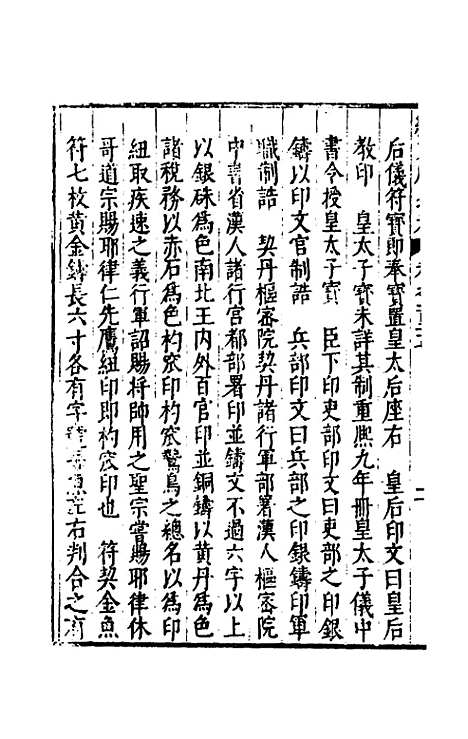 后儀符寶郎奉寶置皇太后座右　皇后印文曰皇后
教印　皇太子寶未詳其制重熙九年冊皇太子儀中
書令授皇太子寶　臣下印吏部印文曰吏部之印銀
鑄以印文官制誥　兵部印文曰兵部之印銀鑄印軍
職制誥　契丹樞密院契丹諸行軍部署漢人樞密院
中書省漢人諸行宮都部署印並鑄文不過六字以上
以銀硃為色南北王內外百官印並銅鑄以黃丹為色
諸稅務以赤石為色杓窊印杓窊鷙鳥之總名以為印
紐取疾速之義行軍詔賜將帥用之聖宗嘗賜耶律休
哥道宗賜耶律仁先鷹紐印即杓窊印也　符契金魚
符七枚黃金鑄長六寸各有字號左右判合之有